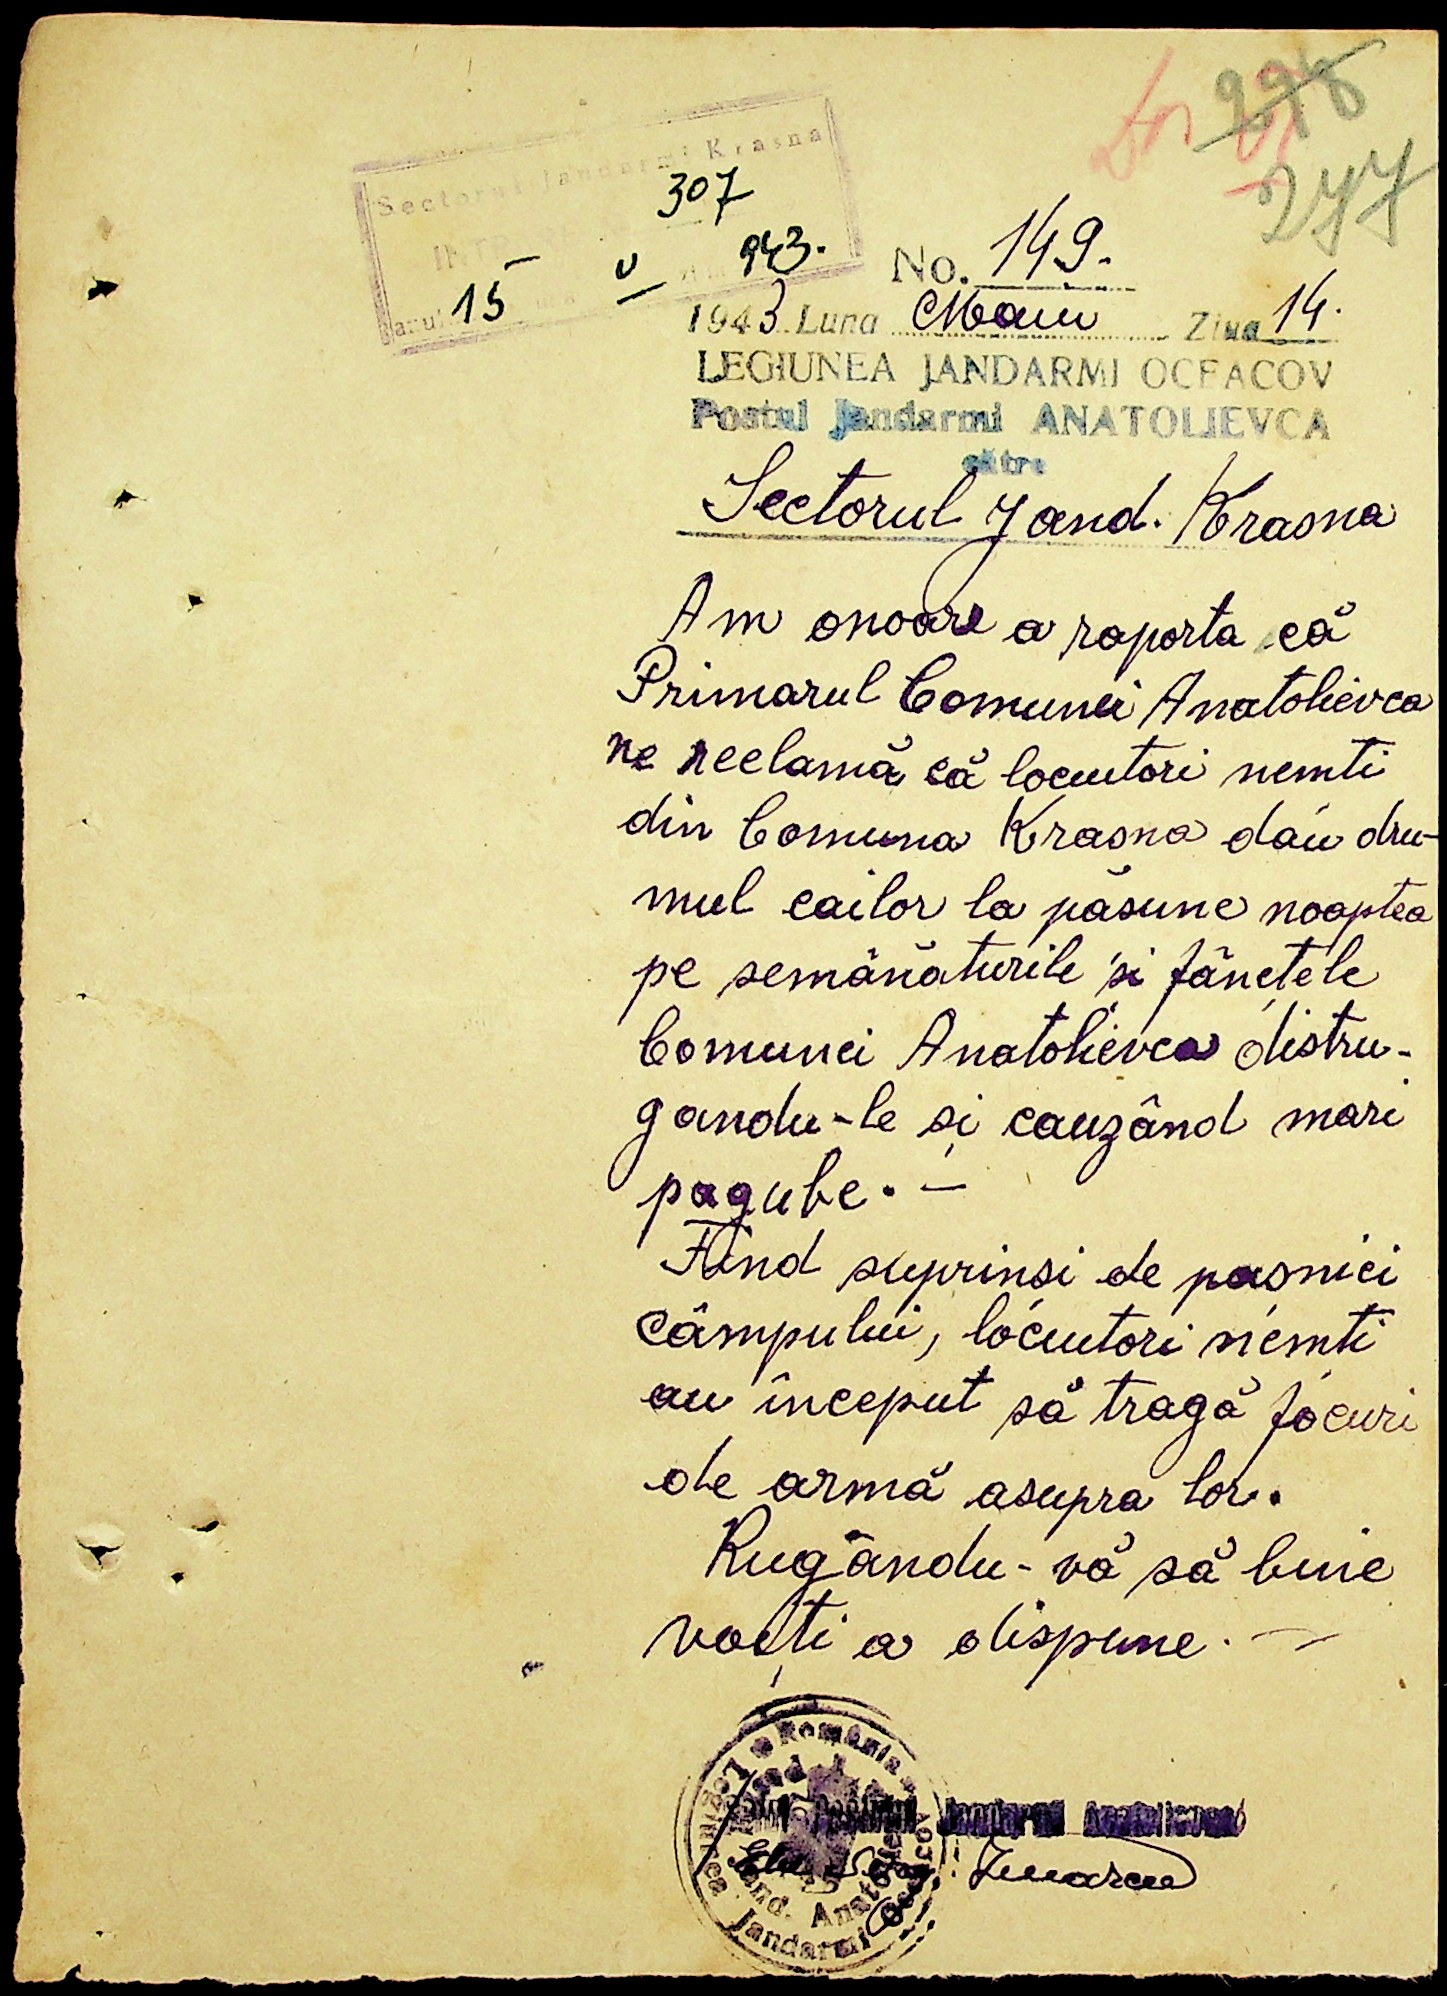 278
277
Sectorul Jandarmi Krasna
307
15 V 943.
No. 149.
1943 Luna Maiu Ziua 14.
LEGIUNEA JANDARMI OCEACOV
Postul Jandarmi ANATOLIEVCA
către
Sectorul Jand. Krasna
Am onoare a raporta că
Primarul Comunei Anatolievca
ne reclamă că locuitori nemti
din Comuna Krasna dau dru-
mul cailor la păsune noaptea
pe semănăturile si fânețele
Comunei Anatolievca distru-
gandu-le și cauzând mari
pagube. —
Fiind suprinsi de pasnici
câmpului, locuitori nemti
au început să tragă focuri
de armă asupra lor.
Rugându-vă să binie
voiți a dispune. —
România
Legiunea Jandarmi Oceacov
Jand. Anatolievca
Șeful Postului Jandarmi Anatolievca